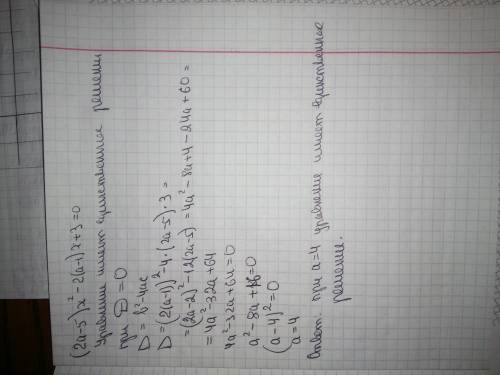 (2a-5)x²-2(a-1)x+3=0
Уравнение имеет единственное решение
при D=0
D = b²-4ac
D=(2(a-1))²-4·(2a-5)·3=
=(2a-2)²-12(2a-5)=4a²-8a+4-24a+60=
=4a²-32a+64
4a²-32a+64=0
a²-8a+16=0
(a-4)²=0
a=4
Ответ: при a=4 уравнение имеет единственное
решение.